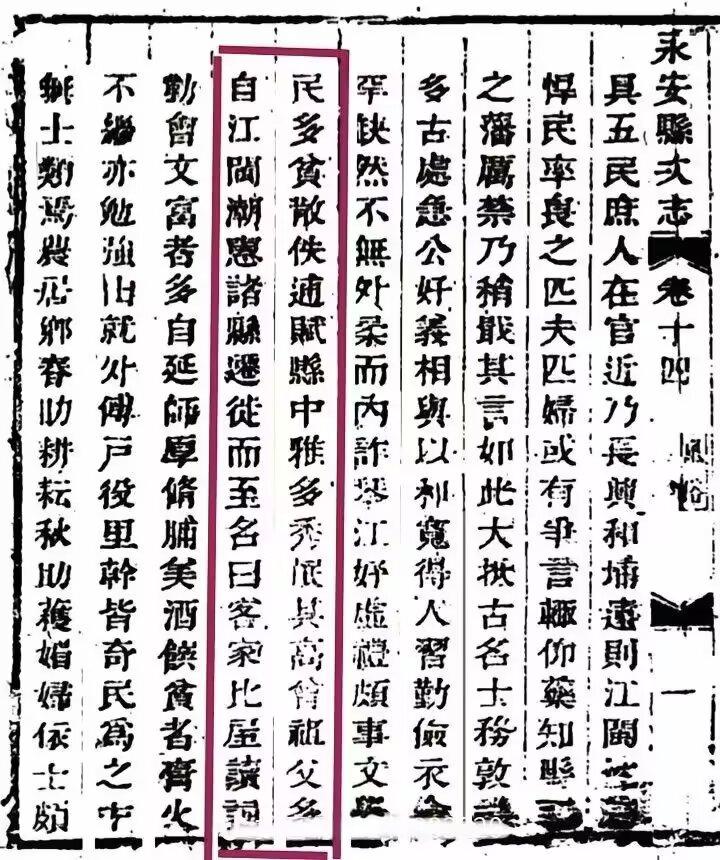 永安縣次志 卷十四 風俗 一
具五民庶人在官近乃長興和埔遠則江閩
悍民率良之匹夫匹婦或有爭言輒仰藥知縣
之藩厲禁乃稍戢其言如此大抵古名士務敦
多古處急公好義相與以和寬得人習勤儉衣
罕缺然不無外柔而內詐琴江好虛禮頗事文
民多貧散佚逋賦縣中雅多秀氓其高曾祖父多
自江閩潮惠諸縣遷徙而至名曰客家比屋讀
勤會文富者多自延師厚脩脯美酒饌貧者膏火
不繼亦勉強出就外傅戶役里幹皆奇民為之中
無士類焉農居鄉春助耕耘秋助穫婦依士頗